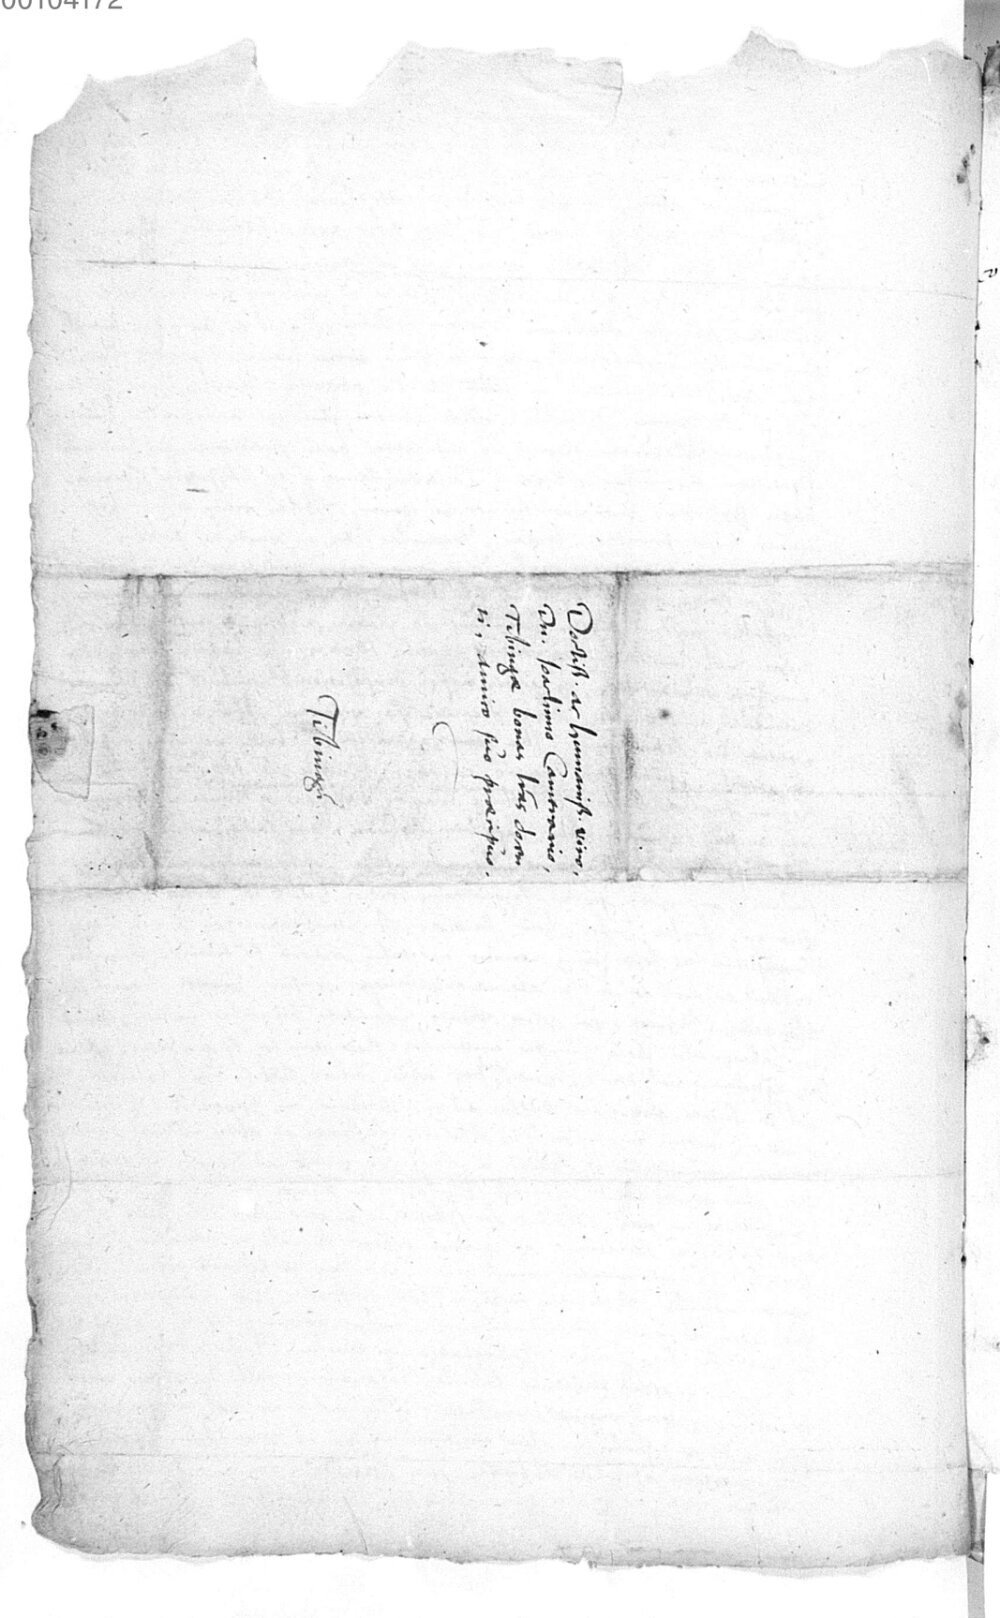 00104172
Doctiss. ac humaniss. viro,
Dn. Ioachimo Camerario,
Tibingæ bonas lras docen
ti, amico suo præcipuo.
Tibingæ.